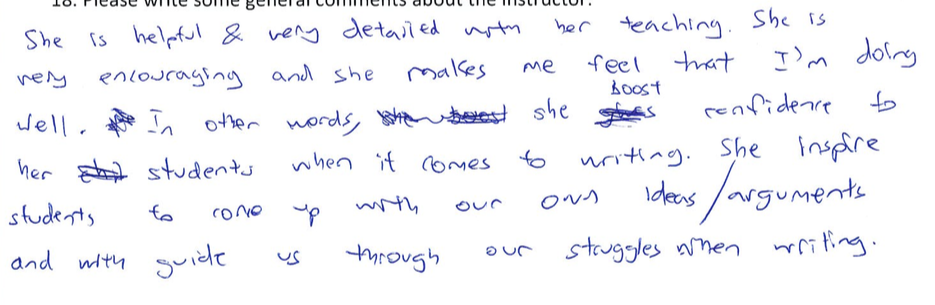 18. Please write some general comments about the instructor:
She is helpful & very detailed with her teaching. She is
very encouraging and she makes me feel that I'm doing
well. In other words, she boost confidence to
her students when it comes to writing. She inspire
students to come up with our own ideas/arguments
and with guide us through our struggles when writing.